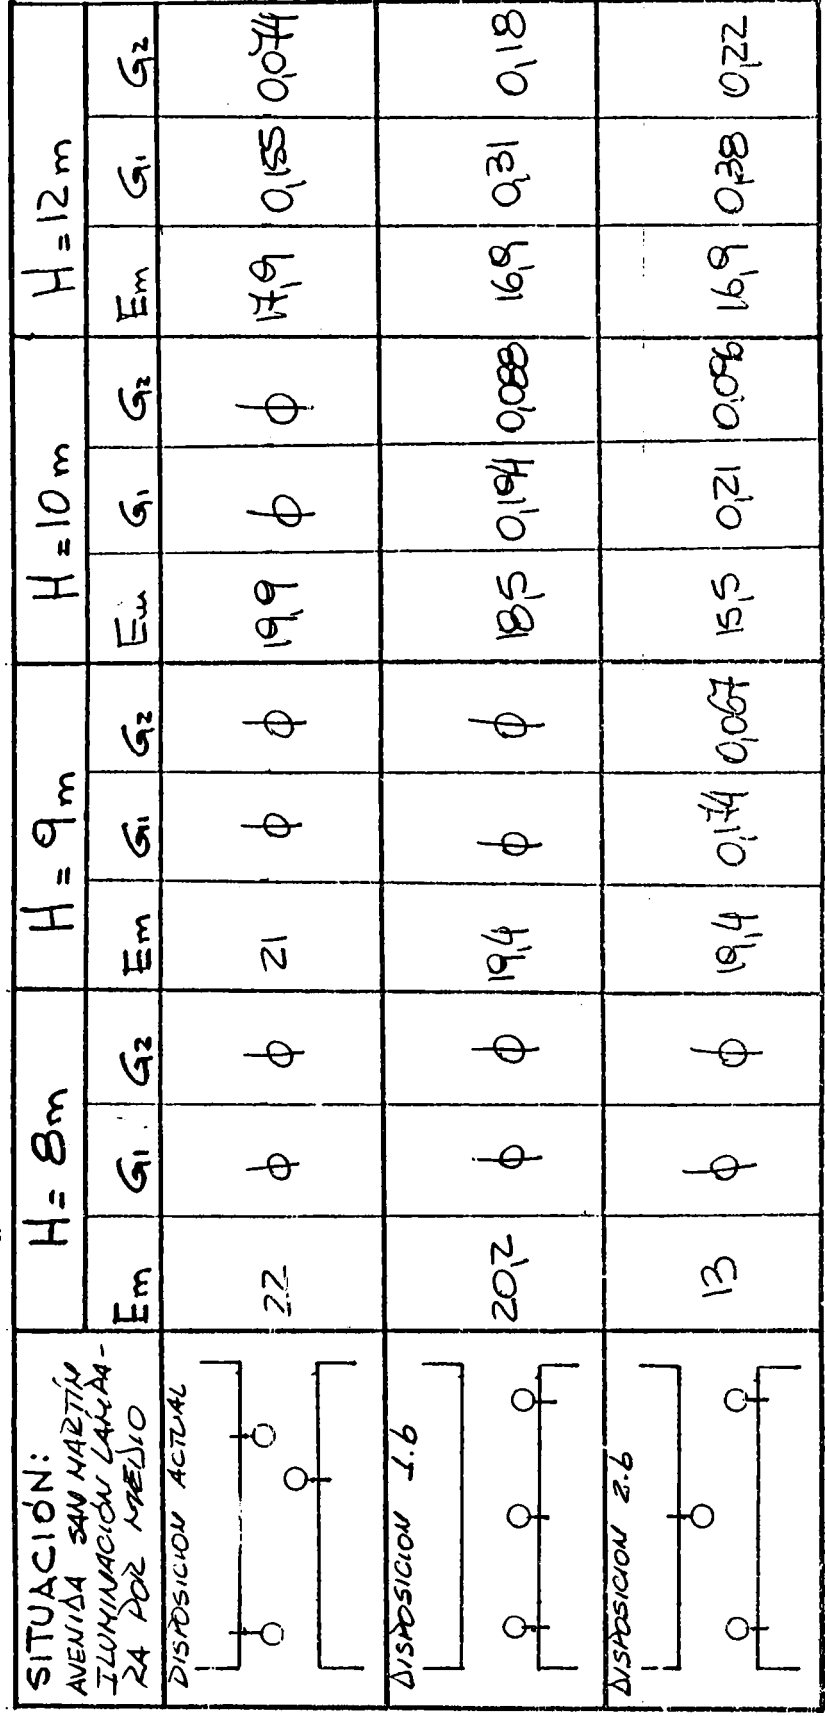 SITUACIÓN:
AVENIDA SAN MARTÍN
ILUMINACIÓN LAMPA-
RA POR MEDIO
H = 8m H = 9m H = 10m H = 12m
Em G1 G2 Em G1 G2 Em G1 G2 Em G1 G2
DISPOSICION ACTUAL
22 ϕ ϕ 21 ϕ ϕ 19,9 ϕ ϕ 17,9 0,155 0,074
DISPOSICION 1.6
20,2 ϕ ϕ 19,4 ϕ ϕ 18,5 0,194 0,088 16,9 0,31 0,18
DISPOSICION 2.6
13 ϕ ϕ 19,4 0,174 0,067 15,5 0,21 0,096 16,9 0,38 0,22